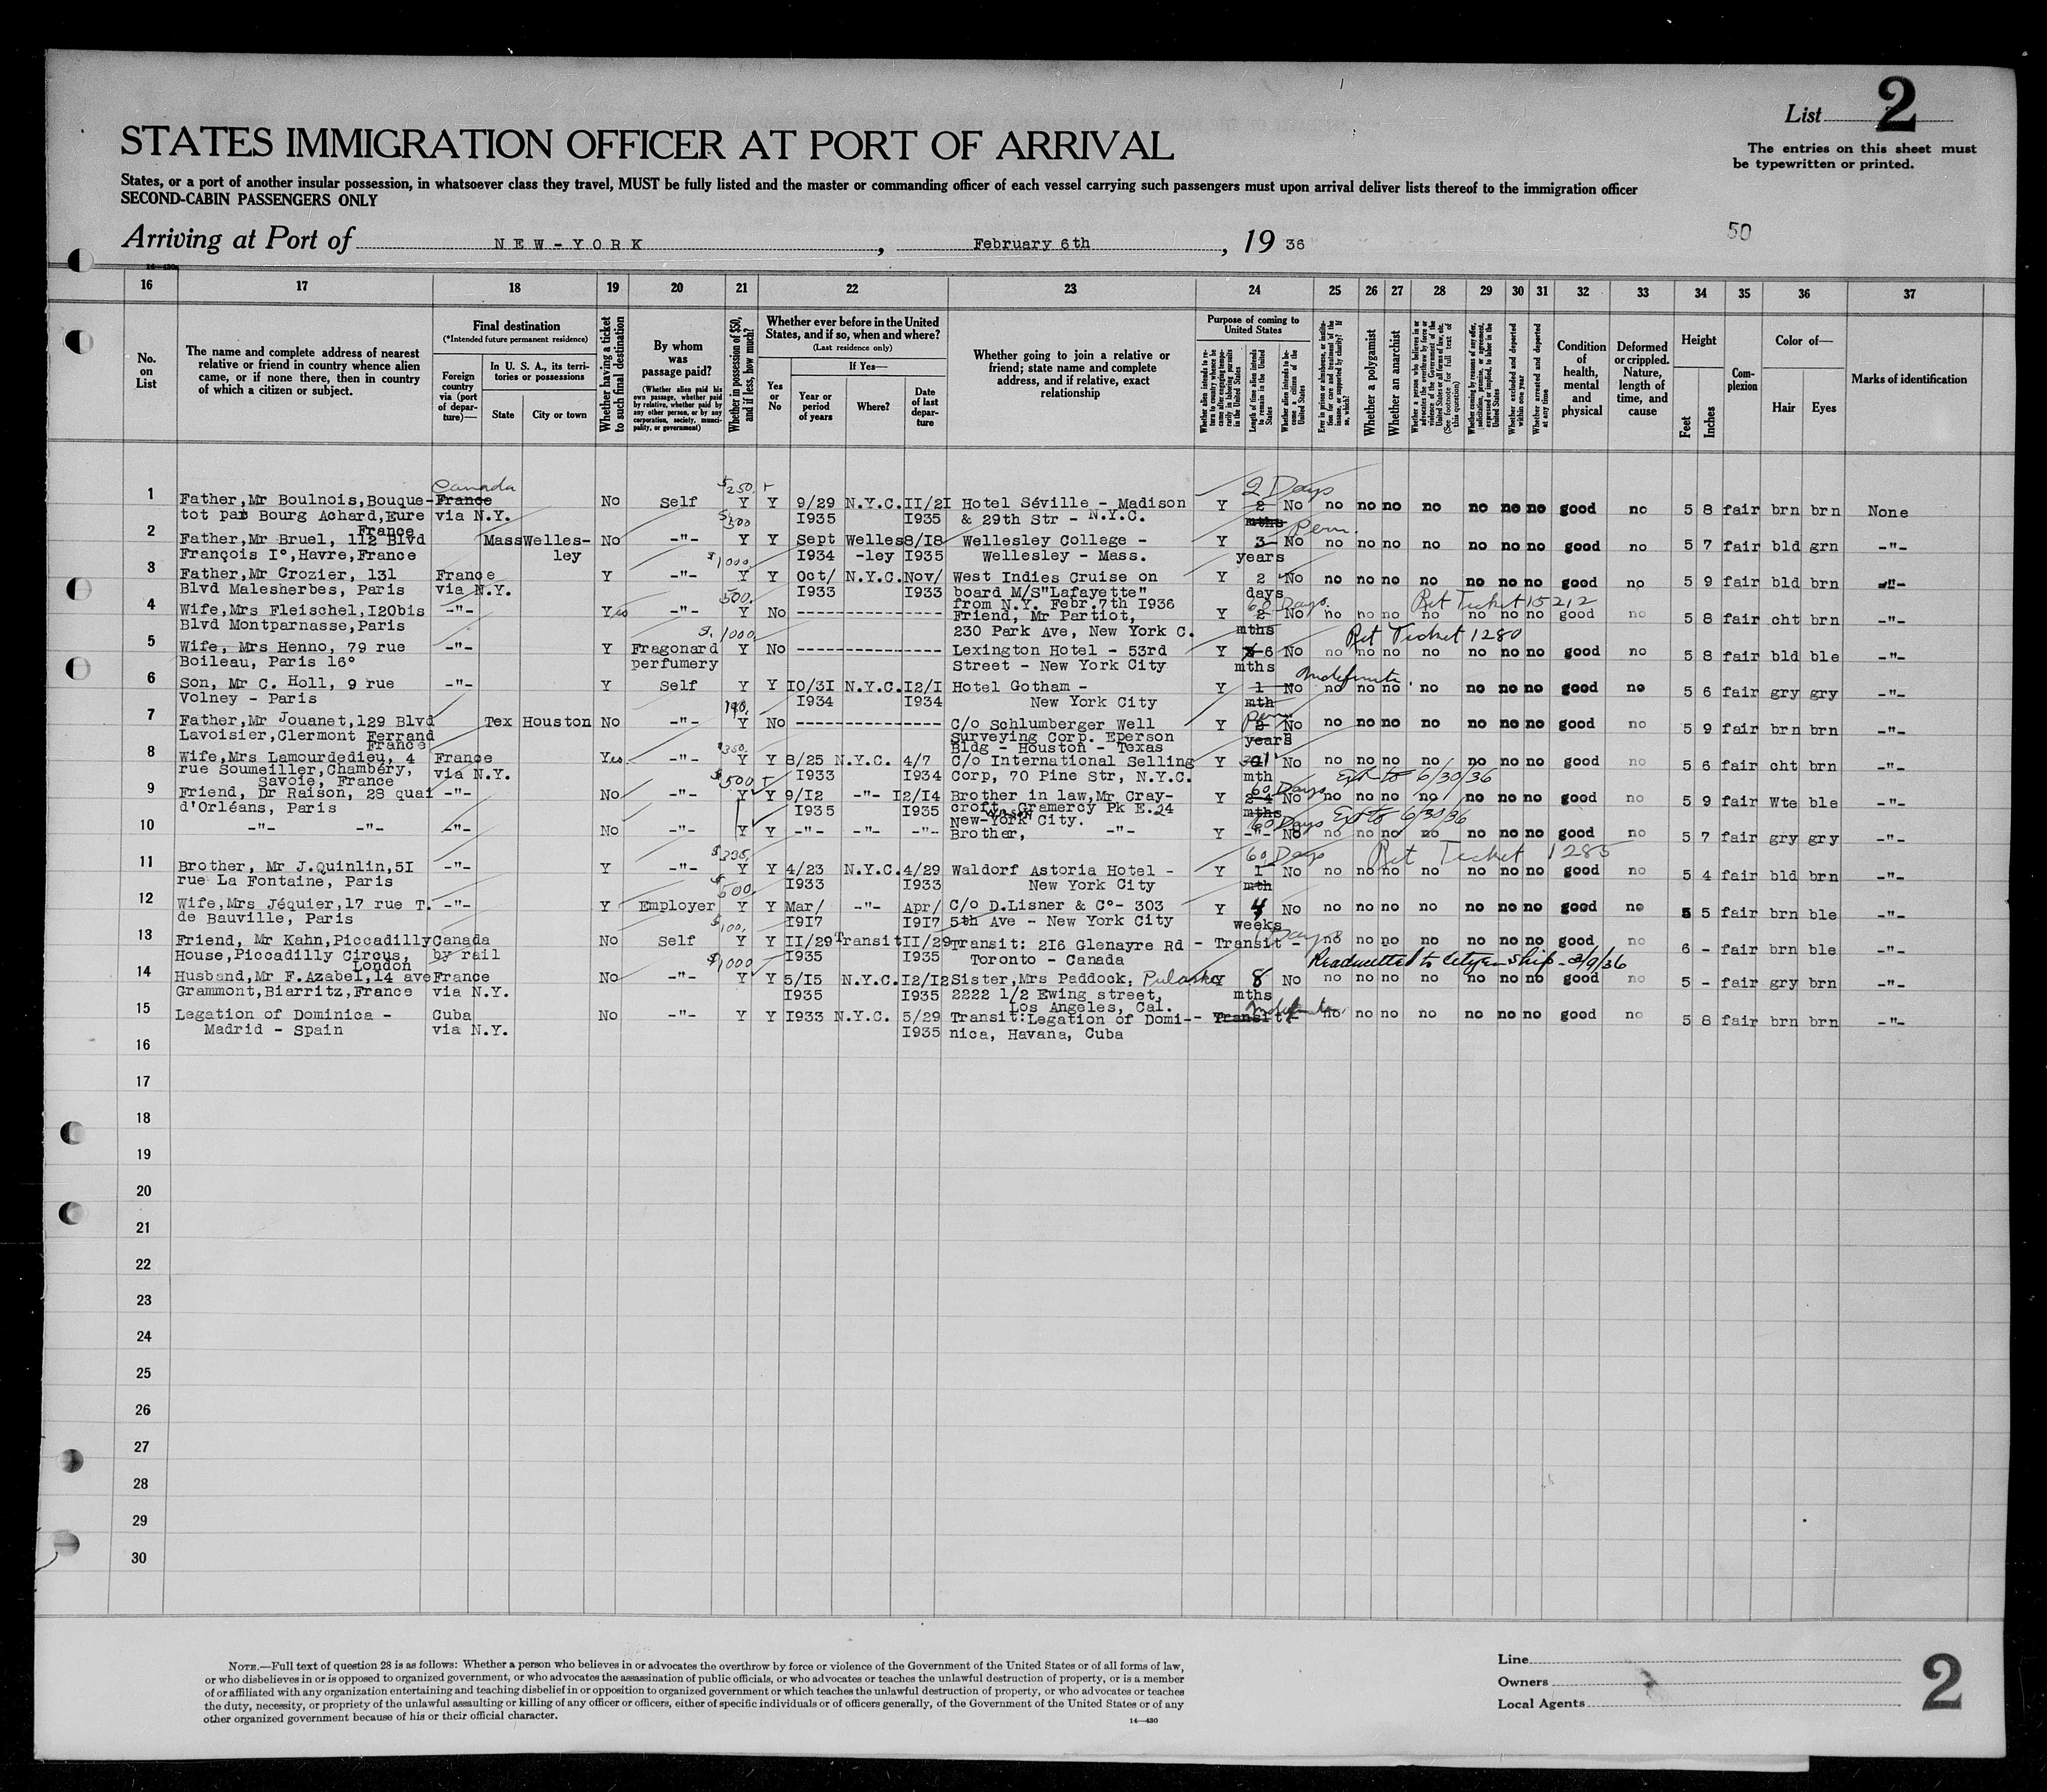 List 2
The entries on this sheet must
be typewritten or printed.
STATES IMMIGRATION OFFICER AT PORT OF ARRIVAL
States, or a port of another insular possession, in whatsoever class they travel, MUST be fully listed and the master or commanding officer of each vessel carrying such passengers must upon arrival deliver lists thereof to the immigration officer
SECOND-CABIN PASSENGERS ONLY
Arriving at Port of NEW-YORK, February 6th, 19 36
50
16 17 18 19 20 21 22 23 24 25 26 27 28 29 30 31 32 33 34 35 36 37
No. on List
The name and complete address of nearest
relative or friend in country whence alien
came, or if none there, then in country
of which a citizen or subject.
Final destination
(*Intended future permanent residence)
Foreign country via (port of departure)—
In U. S. A., its territories or possessions
State City or town
Whether having a ticket to such final destination
By whom was passage paid?
(Whether alien paid his own passage, whether paid by relative, whether paid by any other person, or by any corporation, society, municipality, or government)
Whether in possession of $50, and if less, how much?
Whether ever before in the United States, and if so, when and where?
(Last residence only)
Yes or No
If Yes—
Year or period of years
Where?
Date of last departure
Whether going to join a relative or
friend; state name and complete
address, and if relative, exact
relationship
Purpose of coming to United States
Length of time alien intends to remain in the United States
Whether alien intends to become a citizen of the United States
Whether a polygamist
Whether an anarchist
Whether excluded and deported within one year
Whether arrested and deported at any time
Condition of health, mental and physical
Deformed or crippled. Nature, length of time, and cause
Height
Feet Inches
Complexion
Color of—
Hair Eyes
Marks of identification
Canada $250 2 Days
1 Father,Mr Boulnois,Bouque- France No Self Y Y 9/29 N.Y.C. II/2I Hotel Séville - Madison Y 2 No no no no no no no no good no 5 8 fair brn brn None
tot par Bourg Achard,Eure via N.Y. I935 I935 & 29th Str - N.Y.C. mths
France $500 Perm.
2 Father,Mr Bruel, 112 Blvd Mass Welles- No -"- Y Y Sept Welles 8/I8 Wellesley College - Y 3 No no no no no no no no good no 5 7 fair bld grn -"-
François I°,Havre,France ley I934 -ley I935 Wellesley - Mass. years
$1000
3 Father,Mr Crozier, 131 France Y -"- Y Y Oct/ N.Y.C. Nov/ West Indies Cruise on Y 2 No no no no no no no no good no 5 9 fair bld brn -"-
Blvd Malesherbes, Paris via N.Y. I933 I933 board M/S"Lafayette" days
500 from N.Y. Febr.7th I936 60 Days Ret Ticket 15212
4 Wife,Mrs Fleischel,I20bis -"- Yes -"- Y No ---------------- Friend, Mr Partiot, Y 2 No no no no no no no no good no 5 8 fair cht brn -"-
Blvd Montparnasse,Paris 230 Park Ave, New York C. mths
$1000 Ret Ticket 1280
5 Wife, Mrs Henno, 79 rue -"- Y Fragonard Y No ---------------- Lexington Hotel - 53rd Y 6 No no no no no no no no good no 5 8 fair bld ble -"-
Boileau, Paris 16° perfumery Street - New York City mths
Indefinite
6 Son, Mr C. Holl, 9 rue -"- Y Self Y Y IO/3I N.Y.C. I2/I Hotel Gotham - Y 1 No no no no no no no no good no 5 6 fair gry gry -"-
Volney - Paris I934 I934 New York City mth
190. Perm
7 Father,Mr Jouanet,129 Blvd Tex Houston No -"- Y No ---------------- C/o Schlumberger Well Y 2 No no no no no no no no good no 5 9 fair brn brn -"-
Lavoisier,Clermont Ferrand Surveying Corp. Eperson years
France $350. Bldg - Houston - Texas
8 Wife,Mrs Lamourdedieu, 4 France Yes -"- Y Y 8/25 N.Y.C. 4/7 C/o International Selling Y No no no no no no no no good no 5 6 fair cht brn -"-
rue Soumeiller,Chambéry, via N.Y. I933 I934 Corp, 70 Pine Str, N.Y.C. mth
Savoie, France $500 60 Days Ext to 6/30/36
9 Friend, Dr Raison, 28 quai -"- No -"- Y Y 9/I2 -"- I2/I4 Brother in law,Mr Cray- Y 2 No no no no no no no no good no 5 9 fair Wte ble -"-
d'Orléans, Paris I935 I935 croft, Gramercy Pk E.24 mths
New-York City. 60 Days Ext to 6/30/36
10 -"- -"- -"- No -"- Y Y -"- -"- -"- Brother, -"- Y -"- No no no no no no no no good no 5 7 fair gry gry -"-
60 Days Ret Ticket 1285
11 Brother, Mr J.Quinlin,5I -"- Y -"- Y Y 4/23 N.Y.C. 4/29 Waldorf Astoria Hotel - Y I No no no no no no no no good no 5 4 fair bld brn -"-
rue La Fontaine, Paris I933 I933 New York City mth
$500
12 Wife,Mrs Jéquier,17 rue T. -"- Y Employer Y Y Mar/ -"- Apr/ C/o D.Lisner & C°- 303 Y 4 No no no no no no no no good no 5 5 fair brn ble -"-
de Bauville, Paris I9I7 I9I7 5th Ave - New York City weeks
$100. Days
13 Friend, Mr Kahn,Piccadilly Canada No Self Y Y II/29 Transit II/29 Transit: 2I6 Glenayre Rd - Transit - no no no no no no no good no 6 - fair brn ble -"-
House,Piccadilly Circus, by rail I935 I935 Toronto - Canada
London $1000 Readmitted to Citizenship - 3/9/36
14 Husband,Mr F.Azabel,14 ave France No -"- Y Y 5/I5 N.Y.C. I2/I2 Sister,Mrs Paddock, Y 8 No no no no no no no no good no 5 - fair gry brn -"-
Grammont,Biarritz,France via N.Y. I935 I935 2222 1/2 Ewing street, mths
Los Angeles, Cal. Indefinite
15 Legation of Dominica - Cuba No -"- Y Y I933 N.Y.C. 5/29 Transit:Legation of Domi- - Transit - no no no no no no no good no 5 8 fair brn brn -"-
Madrid - Spain via N.Y. I935 nica, Havana, Cuba
16
17
18
19
20
21
22
23
24
25
26
27
28
29
30
NOTE.—Full text of question 28 is as follows: Whether a person who believes in or advocates the overthrow by force or violence of the Government of the United States or of all forms of law,
or who disbelieves in or is opposed to organized government, or who advocates the assassination of public officials, or who advocates or teaches the unlawful destruction of property, or is a member
of or affiliated with any organization entertaining and teaching disbelief in or opposition to organized government or which teaches the unlawful destruction of property, or who advocates or teaches
the duty, necessity, or propriety of the unlawful assaulting or killing of any officer or officers, either of specific individuals or of officers generally, of the Government of the United States or of any
other organized government because of his or their official character.
14—430
Line
Owners
Local Agents
2